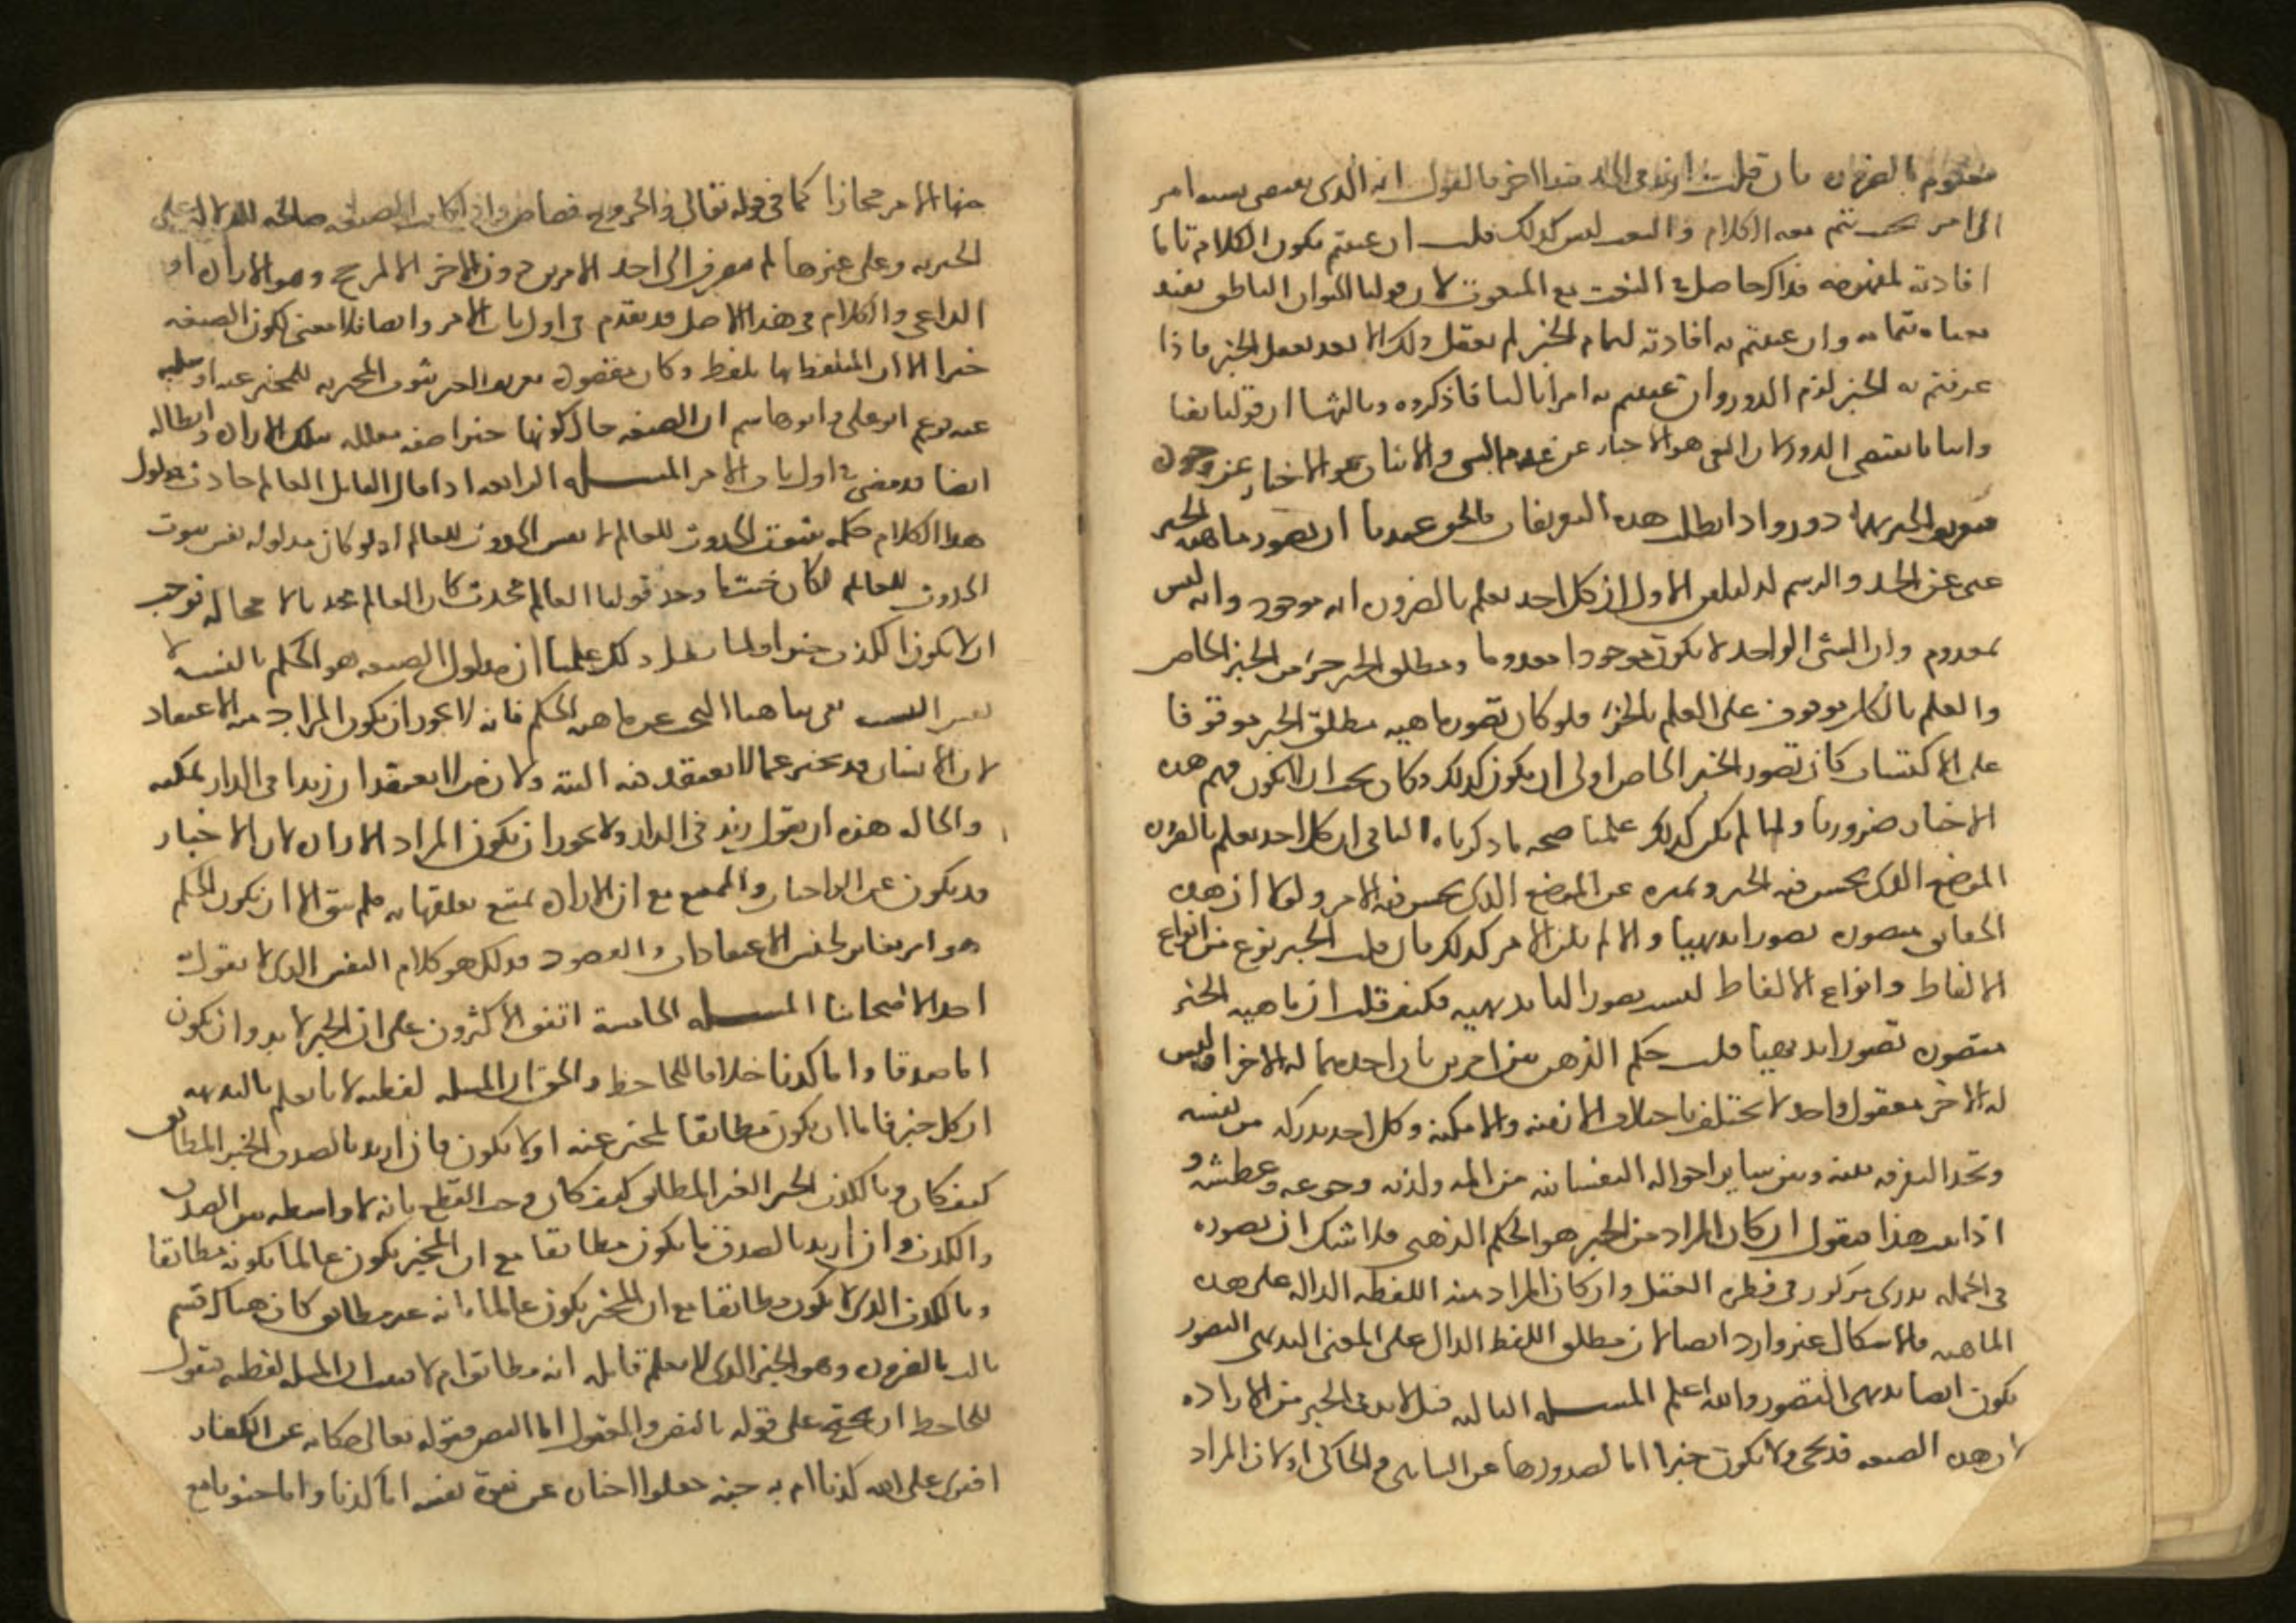 معلوم بالضرورة فان قلت ازيد في الحد قيدا اخر فاقول انه الذي يقتضي نسبة امر
الى امر بحيث يتم معه الكلام والنعت ليس كذلك قلت ان عنيتم بكون الكلام تاما
افادته لمفهومه فذاك حاصل في النعت مع المنعوت لان قولنا الحيوان الناطق يفيد
معناه بتمامه وان عنيتم به افادته لتمام الخبر لم يعقل ذلك الا بعد تعقل الخبر فاذا
عرفتم به الخبر لزم الدور وان عنيتم به امرا ثالثا فاذكروه وثالثها ان قولنا نفيا
واثباتا يقتضي الدور لان النفي هو الاخبار عن عدم الشي والاثبات هو الاخبار عن وجوده
فتعريف الخبر بهما دور واذا بطلت هذه التعريفات فالحق عندنا ان تصور ماهية الخبر
غني عن الحد والرسم لدليلين الاول ان كل احد يعلم بالضرورة انه موجود وانه ليس
بمعدوم وان الشي الواحد لا يكون موجودا معدوما ومطلق الخبر جزء من الخبر الخاص
والعلم بالكل موقوف على العلم بالجزء فلو كان تصور ماهية مطلق الخبر موقوفا
على الاكتساب كان تصور الخبر الخاص اولى ان يكون كذلك وكان يجب ان لا يكون فهم هذه
الاخبار ضروريا ولما لم يكن كذلك علمنا صحة ما ذكرناه الثاني ان كل احد يعلم بالضرورة
الموضع الذي يحسن فيه الخبر ويميزه عن الموضع الذي يحسن فيه الامر ولولا ان هذه
الحقائق متصورة تصورا بديهيا والا لم يكن الامر كذلك فان قلت الخبر نوع من انواع
الالفاظ وانواع الالفاظ ليست تصوراتها بديهية فكيف قلت ان ماهية الخبر
متصورة تصورا بديهيا قلت حكم الذهن بين امرين بان احدهما له الاخر او ليس
له الاخر معقول واحد لا يختلف باختلاف الازمنة والامكنة وكل احد يدركه من نفسه
ويجد التفرقة بينه وبين ساير احواله النفسانية من المه ولذته وجوعه وعطشه و
اذا ثبت هذا فنقول ان كان المراد من الخبر هو الحكم الذهني فلا شك ان تصوره
في الجملة بديهي مركوز في فطرة العقل وان كان المراد منه اللفظة الدالة على هذه
الماهية فالاشكال غير وارد ايضا لان مطلق اللفظ الدال على المعنى البديهي التصور
يكون ايضا بديهي التصور والله اعلم المسلة الثالثة قيل لا بد في الخبر من الارادة
لان هذه الصيغة قد تجي ولا تكون خبرا اما لصدورها عن الساهي والحاكي او لان المراد
منها الامر مجازا كما في قوله تعالى والجروح قصاص واذا كانت الصيغة صالحة للدلالة على
الخبرية وعلى غيرها لم ينصرف الى احد الامرين دون الاخر الا لمرجح وهو الارادة او
الداعي والكلام في هذا الاصل قد تقدم في اول باب الامر وايضا فلا معنى لكون الصيغة
خبرا الا ان المتلفظ بها تلفظ وكان مقصوده تعريف الغير ثبوت المخبر به للمخبر عنه او سلبه
عنه وزعم ابو علي وابو هاشم ان الصيغة حال كونها خبرا صفة معللة بتلك الارادة وابطاله
ايضا قد مضى في اول باب الامر المسلة الرابعة اذا قال القايل العالم حادث فمدلول
هذا الكلام حكمه بثبوت الحدوث للعالم لا نفس الحدوث للعالم اذ لو كان مدلوله نفس ثبوت
الحدوث للعالم لكان حيثما وجد قولنا العالم محدث كان العالم محدثا لا محالة فوجب
ان لا يكون الكذب خبرا ولما بطل ذلك علمنا ان مدلول الصيغة هو الحكم بالنسبة لا
نفس النسبة بقي هاهنا البحث عن ماهية الحكم فانه لا يجوز ان يكون المراد منه الاعتقاد
لان الانسان قد يخبر عما لا يعتقده فيه البتة ولان من لا يعتقد ان زيدا في الدار يمكنه
والحالة هذه ان يقول زيد في الدار ولا يجوز ان يكون المراد الارادة لان الاخبار
قد يكون عن الواجبات والممتنع مع ان الارادة يمتنع تعلقها به فلم يبق الا ان يكون الحكم
هو امر مغاير لجنس الاعتقادات والقصود وذلك هو كلام النفس الذي لا يقول به
احد الا اصحابنا المسلة الخامسة اتفق الاكثرون على ان الخبر لا بد وان يكون
اما صدقا واما كذبا خلافا للجاحظ والحق ان المسلة لفظية لانا نعلم بالبديهة
ان كل خبر فاما ان يكون مطابقا للمخبر عنه او لا يكون فان اريد بالصدق الخبر المطابق
كيف كان وبالكذب الخبر الغير المطابق كيف كان وجب القطع بانه لا واسطة بين الصدق
والكذب وان اريد بالصدق ما يكون مطابقا مع ان المخبر يكون عالما بكونه مطابقا
وبالكذب الذي لا يكون مطابقا مع ان المخبر يكون عالما بانه غير مطابق كان هناك قسم
ثالث بالضرورة وهو الخبر الذي لا يعلم قايله انه مطابق ام لا فثبت ان المسلة لفظية فنقول
للجاحظ ان يحتج على قوله بالنص والمعقول اما النص فقوله تعالى حكاية عن الكفار
افترى على الله كذبا ام به جنة جعلوا اخباره عن نبوة نفسه اما كذبا واما جنونا مع